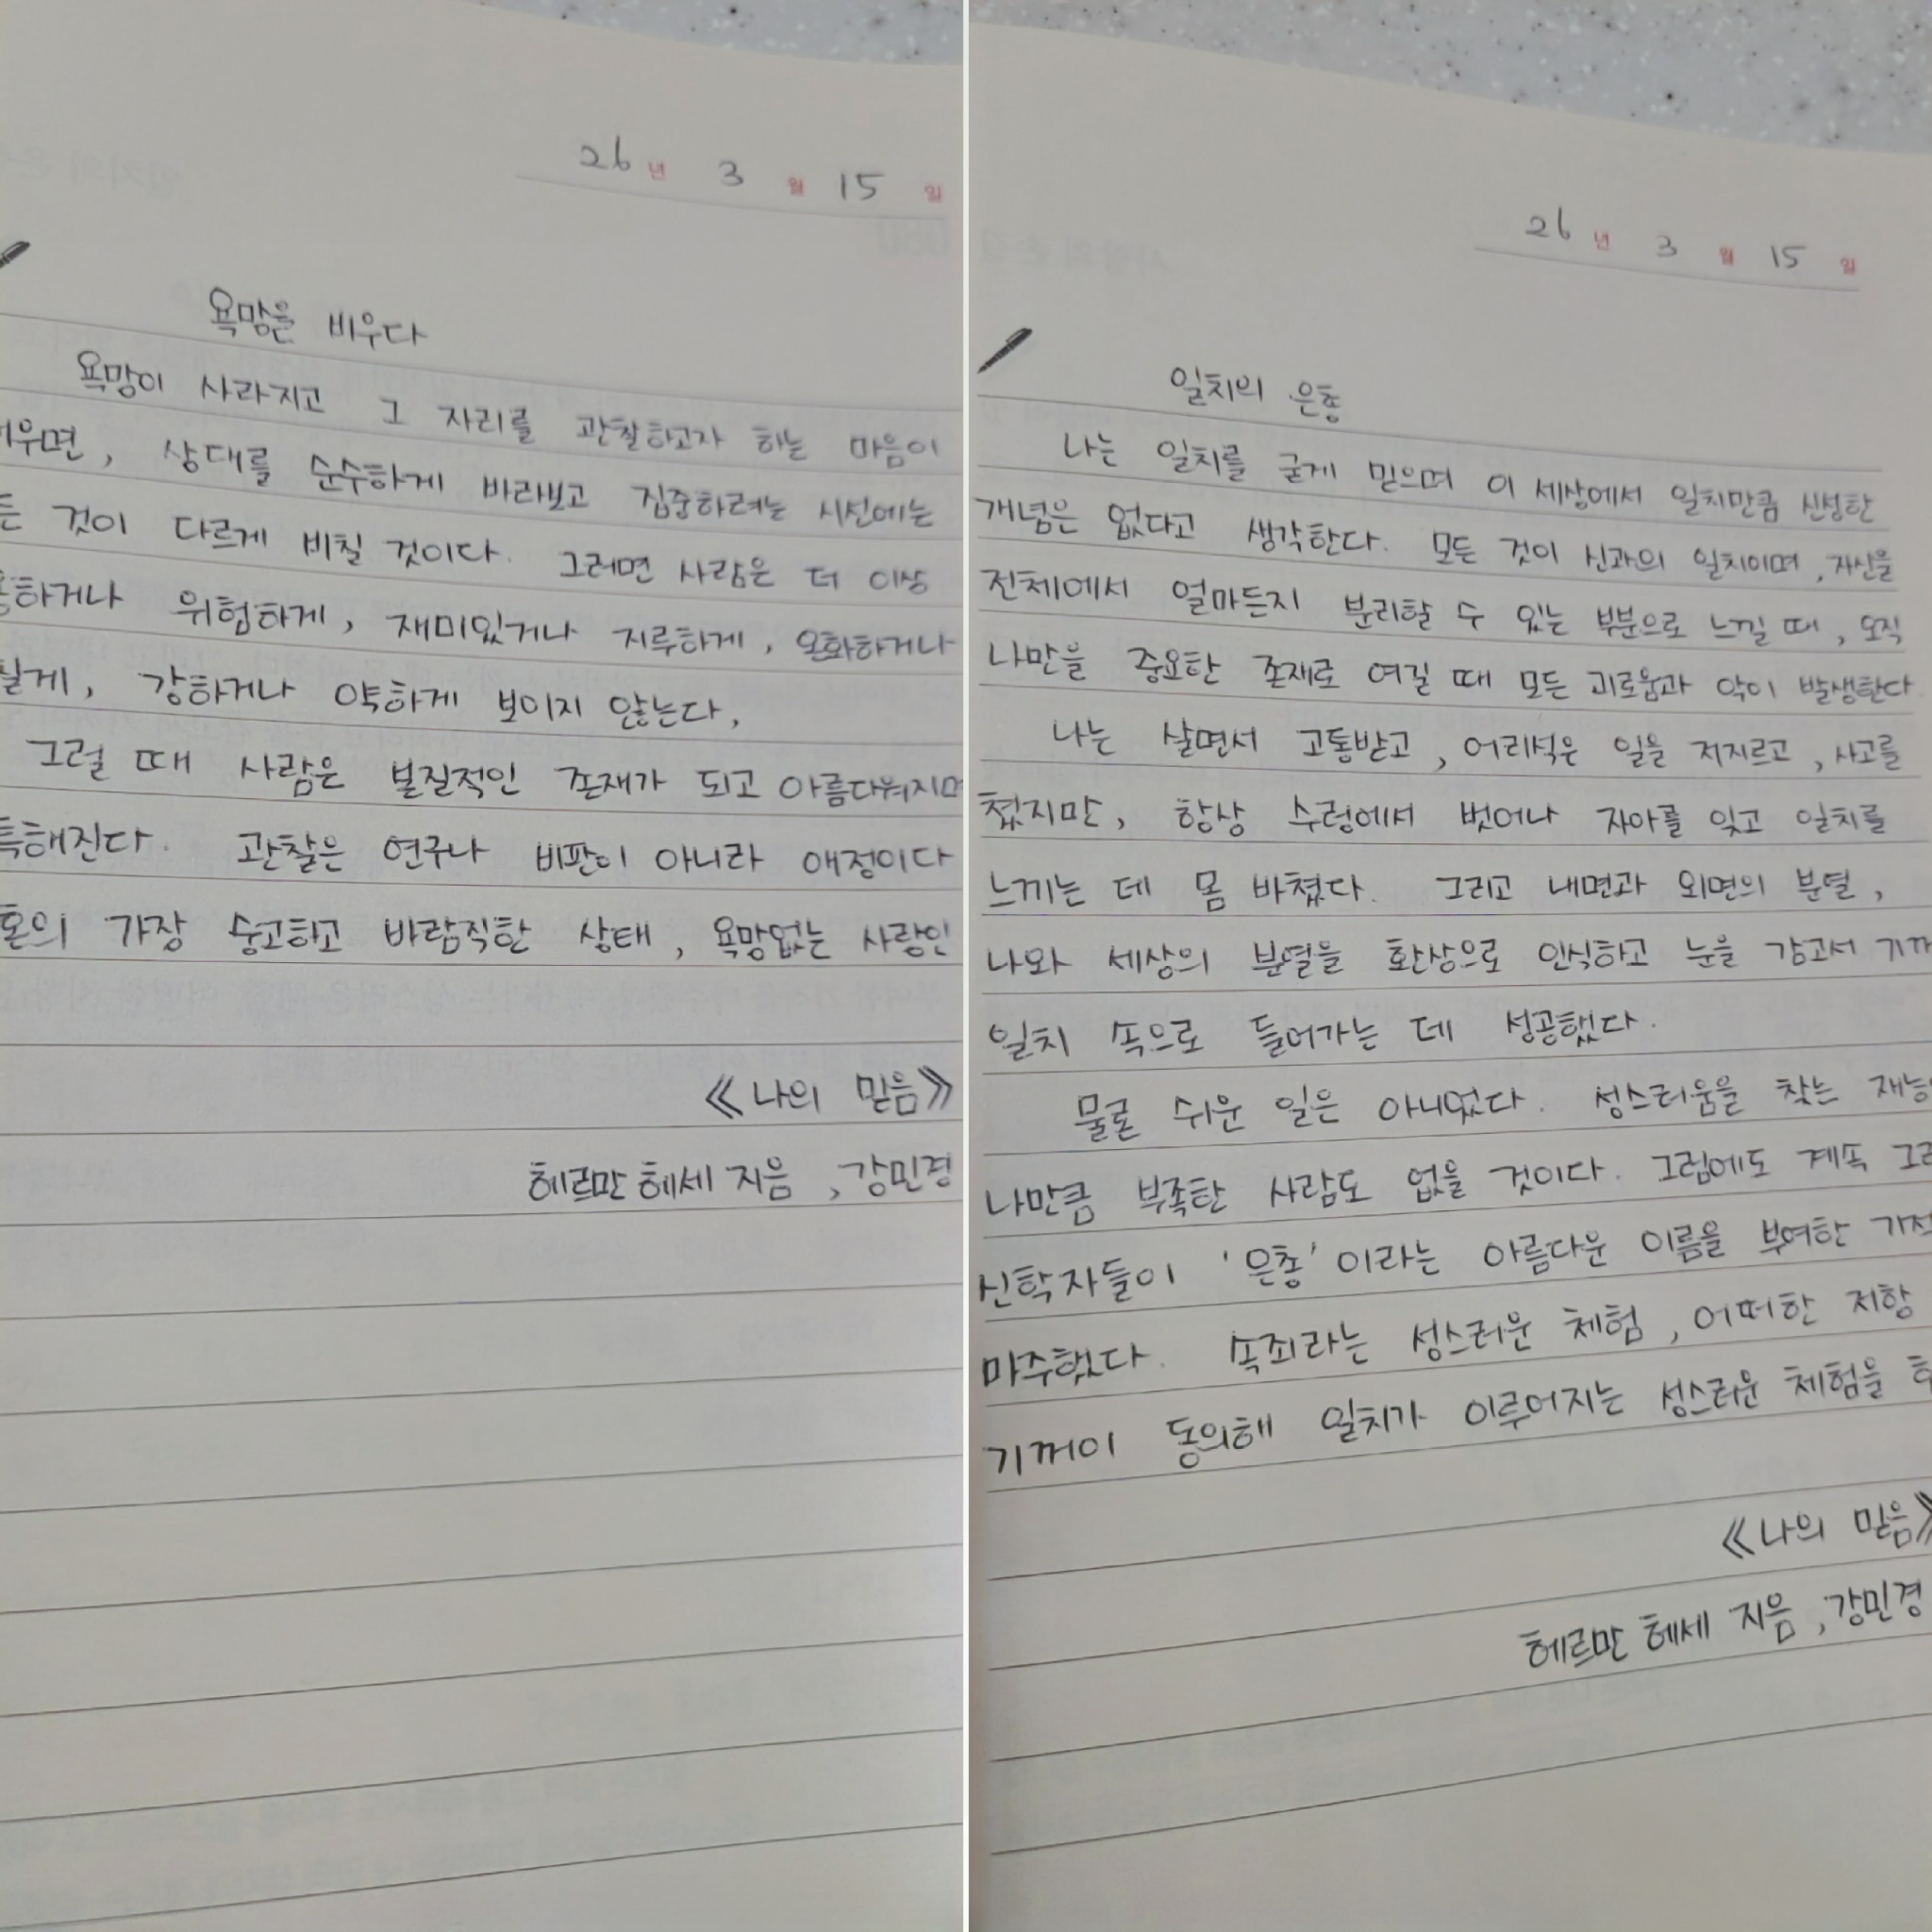 26년 3월 15일
욕망을 비우다
욕망이 사라지고 그 자리를 관찰하고자 하는 마음이
상대를 순수하게 바라보고 집중하려는 시선에는
것이 다르게 비칠 것이다. 그러면 사람은 더 이상
위험하게, 재미있거나 지루하게, 온화하거나
강하거나 약하게 보이지 않는다,
그럴 때 사람은 본질적인 존재가 되고 아름다워지며
관찰은 연구나 비판이 아니라 애정이다
가장 숭고하고 바람직한 상태, 욕망없는 사랑인
《나의 믿음》
헤르만 헤세 지음, 강민경
26년 3월 15일
일치의 은총
나는 일치를 굳게 믿으며 이 세상에서 일치만큼 신성한
개념은 없다고 생각한다. 모든 것이 신과의 일치이며, 자신을
전체에서 얼마든지 분리할 수 있는 부분으로 느낄 때, 오직
나만을 중요한 존재로 여길 때 모든 괴로움과 악이 발생한다
나는 살면서 고통받고, 어리석은 일을 저지르고, 사고를
쳤지만, 항상 수렁에서 벗어나 자아를 잊고 일치를
느끼는 데 몸 바쳤다. 그리고 내면과 외면의 분열,
나와 세상의 분열을 환상으로 인식하고 눈을 감고서
일치 속으로 들어가는 데 성공했다.
물론 쉬운 일은 아니었다. 성스러움을 찾는
나만큼 부족한 사람도 없을 것이다. 그럼에도 계속
신학자들이 '은총'이라는 아름다운 이름을 부여한
마주했다. 속죄라는 성스러운 체험, 어떠한 저항
기꺼이 동의해 일치가 이루어지는 성스러운 체험을
《나의 믿음》
헤르만 헤세 지음, 강민경